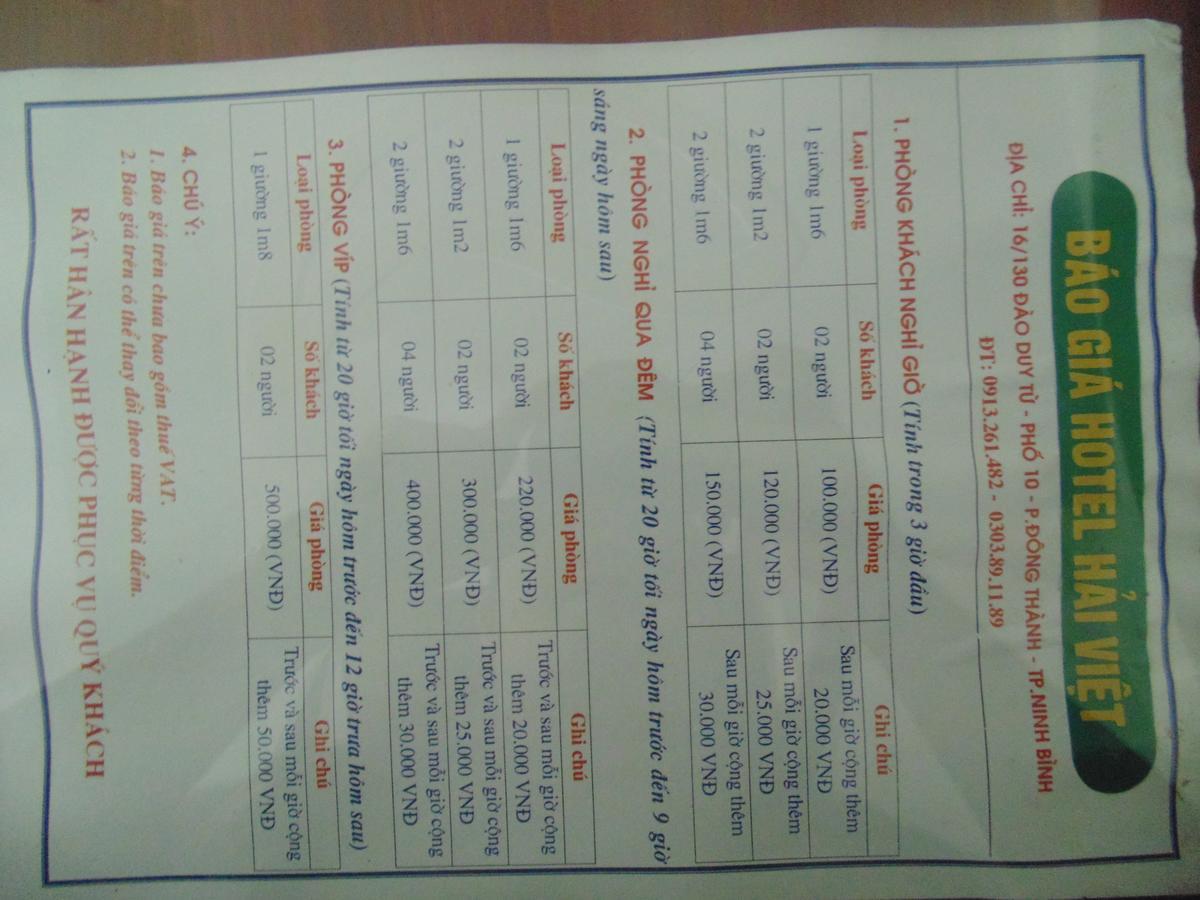 BÁO GIÁ HOTEL HẢI VIỆT
ĐỊA CHỈ: 16/130 ĐÀO DUY TỪ - PHỐ 10 - P.ĐÔNG THÀNH - TP.NINH BÌNH
ĐT: 0913.261.482 - 0303.89.11.89
1. PHÒNG KHÁCH NGHỈ GIỜ (Tính trong 3 giờ đầu)
Loại phòng Số khách Giá phòng Ghi chú
1 giường 1m6 02 người 100.000 (VNĐ) Sau mỗi giờ cộng thêm
20.000 VNĐ
2 giường 1m2 02 người 120.000 (VNĐ) Sau mỗi giờ cộng thêm
25.000 VNĐ
2 giường 1m6 04 người 150.000 (VNĐ) Sau mỗi giờ cộng thêm
30.000 VNĐ
2. PHÒNG NGHỈ QUA ĐÊM (Tính từ 20 giờ tối ngày hôm trước đến 9 giờ
sáng ngày hôm sau)
Loại phòng Số khách Giá phòng Ghi chú
1 giường 1m6 02 người 220.000 (VNĐ) Trước và sau mỗi giờ cộng
thêm 20.000 VNĐ
2 giường 1m2 02 người 300.000 (VNĐ) Trước và sau mỗi giờ cộng
thêm 25.000 VNĐ
2 giường 1m6 04 người 400.000 (VNĐ) Trước và sau mỗi giờ cộng
thêm 30.000 VNĐ
3. PHÒNG VÍP (Tính từ 20 giờ tối ngày hôm trước đến 12 giờ trưa hôm sau)
Loại phòng Số khách Giá phòng Ghi chú
1 giường 1m8 02 người 500.000 (VNĐ) Trước và sau mỗi giờ cộng
thêm 50.000 VNĐ
4. CHÚ Ý:
1. Báo giá trên chưa bao gồm thuế VAT.
2. Báo giá trên có thể thay đổi theo từng thời điểm.
RẤT HÂN HẠNH ĐƯỢC PHỤC VỤ QUÝ KHÁCH